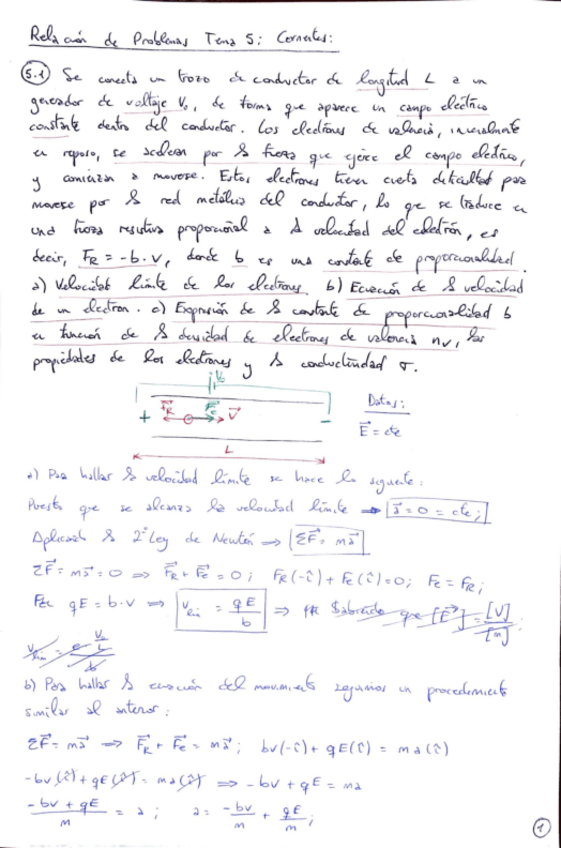 Relación de Problemas Tema 5: Corrientes:
5.1 Se conecta un trozo de conductor de longitud L a un
generador de voltaje V₀, de forma que aparece un campo eléctrico
constante dentro del conductor. Los electrones de valencia, inicialmente
en reposo, se aceleran por la fuerza que ejerce el campo eléctrico,
y comienzan a moverse. Estos electrones tienen cierta dificultad para
moverse por la red metálica del conductor, lo que se traduce en
una fuerza resistiva proporcional a la velocidad del electrón, es
decir, F_R = -b·v, donde b es una constante de proporcionalidad.
a) Velocidad límite de los electrones. b) Ecuación de la velocidad
de un electron. c) Expresión de la constante de proporcionalidad b
en función de la densidad de electrones de valencia n_v, las
propiedades de los electrones y la conductividad σ.
V₀
+ F⃗_R F⃗e V⃗ -
L
Datos:
E⃗ = cte
a) Para hallar la velocidad límite se hace lo siguiente:
Puesto que se alcanza la velocidad límite ⇒ a⃗ = 0 = cte;
Aplicando la 2ª Ley de Newton ⇒ ΣF⃗ = ma⃗
ΣF⃗ = ma⃗ = 0 ⇒ F⃗_R + F⃗e = 0; F_R(-î) + Fe(î) = 0; Fe = F_R;
qE = b·v ⇒ V_lim = qE/b ⇒ Sabiendo que [E⃗] = [V]/[m];
V_lim =
b) Para hallar la ecuación del movimiento seguimos un procedimiento
similar al anterior:
ΣF⃗ = ma⃗ ⇒ F⃗_R + F⃗e = ma⃗; bv(-î) + qE(î) = ma(î)
-bv(î) + qE(î) = ma(î) ⇒ -bv + qE = ma
(-bv + qE)/m = a; a = -bv/m + qE/m;
1